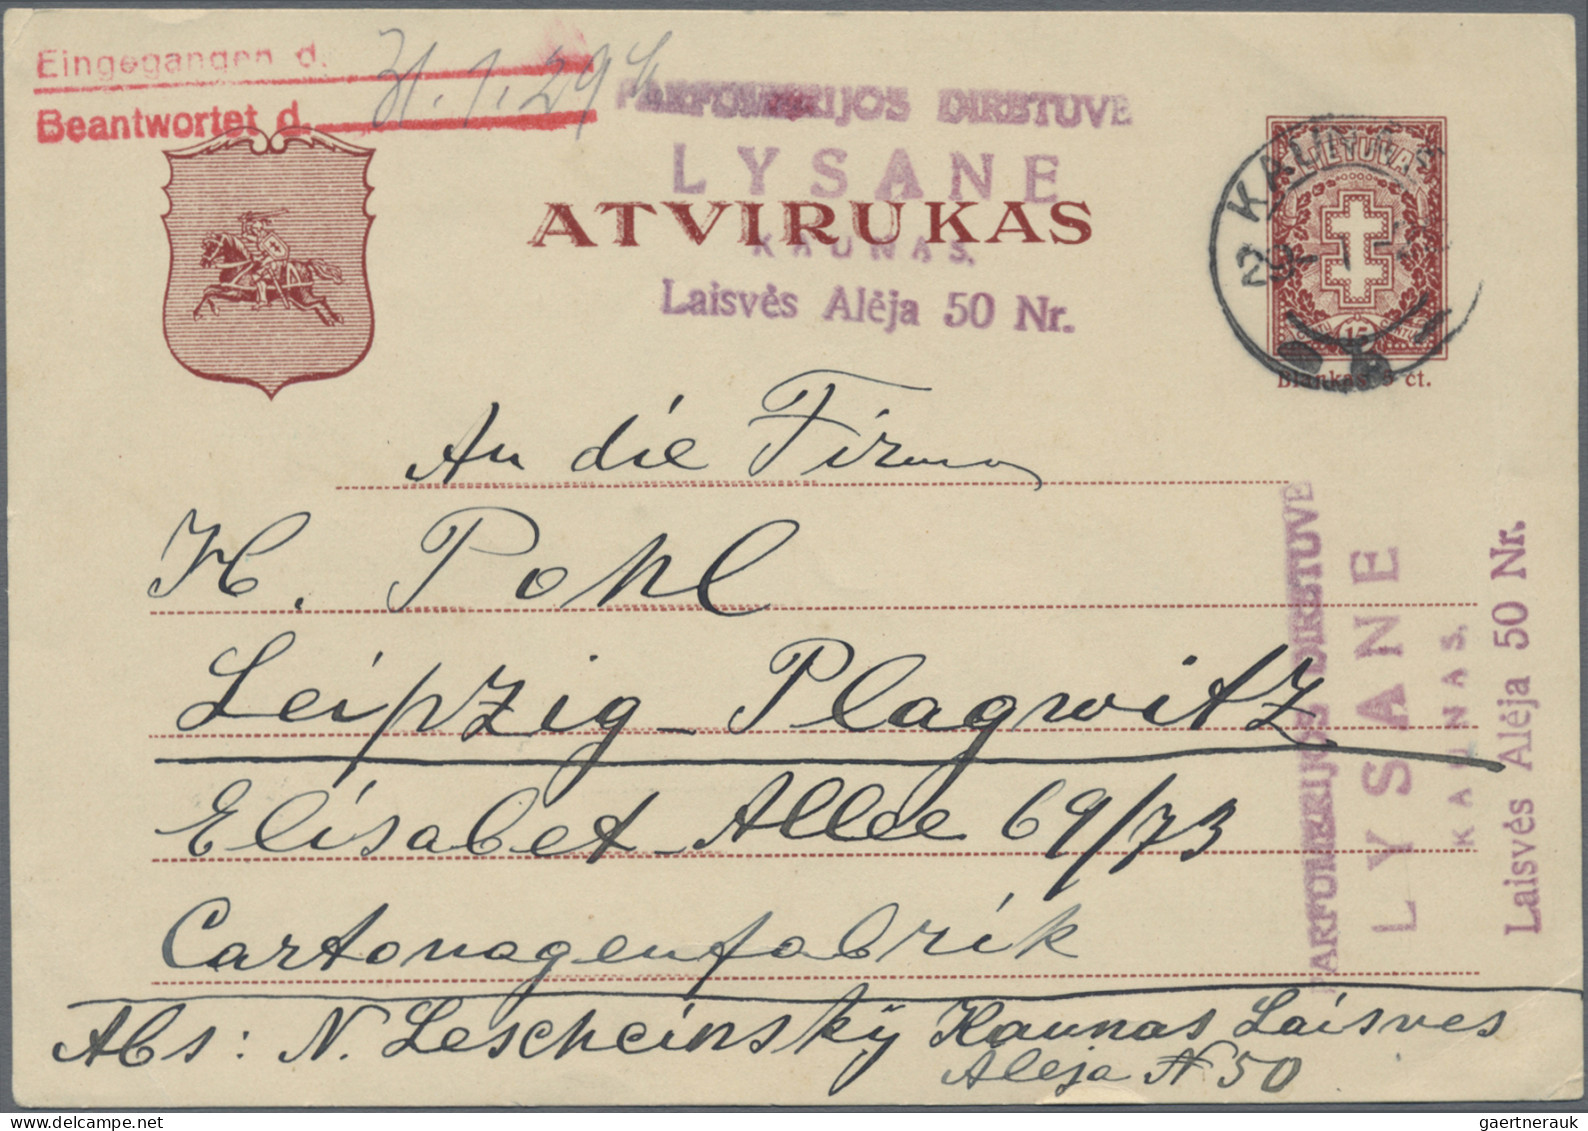 Eingegangen d. 31.1.29
Beantwortet d.
PARFUMERIJOS DIRBTUVE
LYSANE
ATVIRUKAS
KAUNAS.
Laisvės Alėja 50 Nr.
LIETUVA
KAUNAS
29
15
Blankas 5 ct.
An die Firma
H. Pohl
Leipzig-Plagwitz
Elisabet-Allee 69/73
Cartonagenfabrik
Abs: N. Lescheinsky Kaunas Laisves
Aleja N 50
PARFUMERIJOS DIRBTUVE
LYSANE
KAUNAS.
Laisvės Alėja 50 Nr.
gaertnerauk